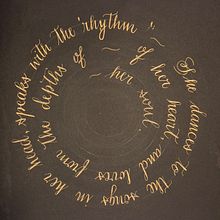 She dances to the songs in her head, speaks with the "rhythm" ~ of her heart and loves from the depths of ~ her soul